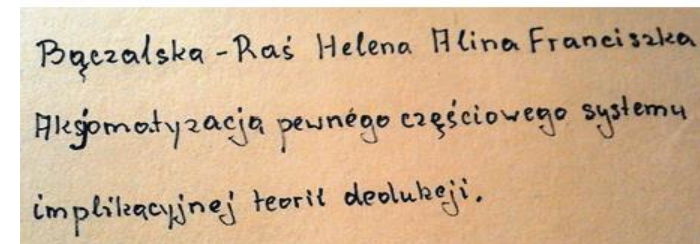 Bączalska-Raś Helena Alina Franciszka
Aksjomatyzacja pewnego częściowego systemu
implikacyjnej teorii dedukcji.